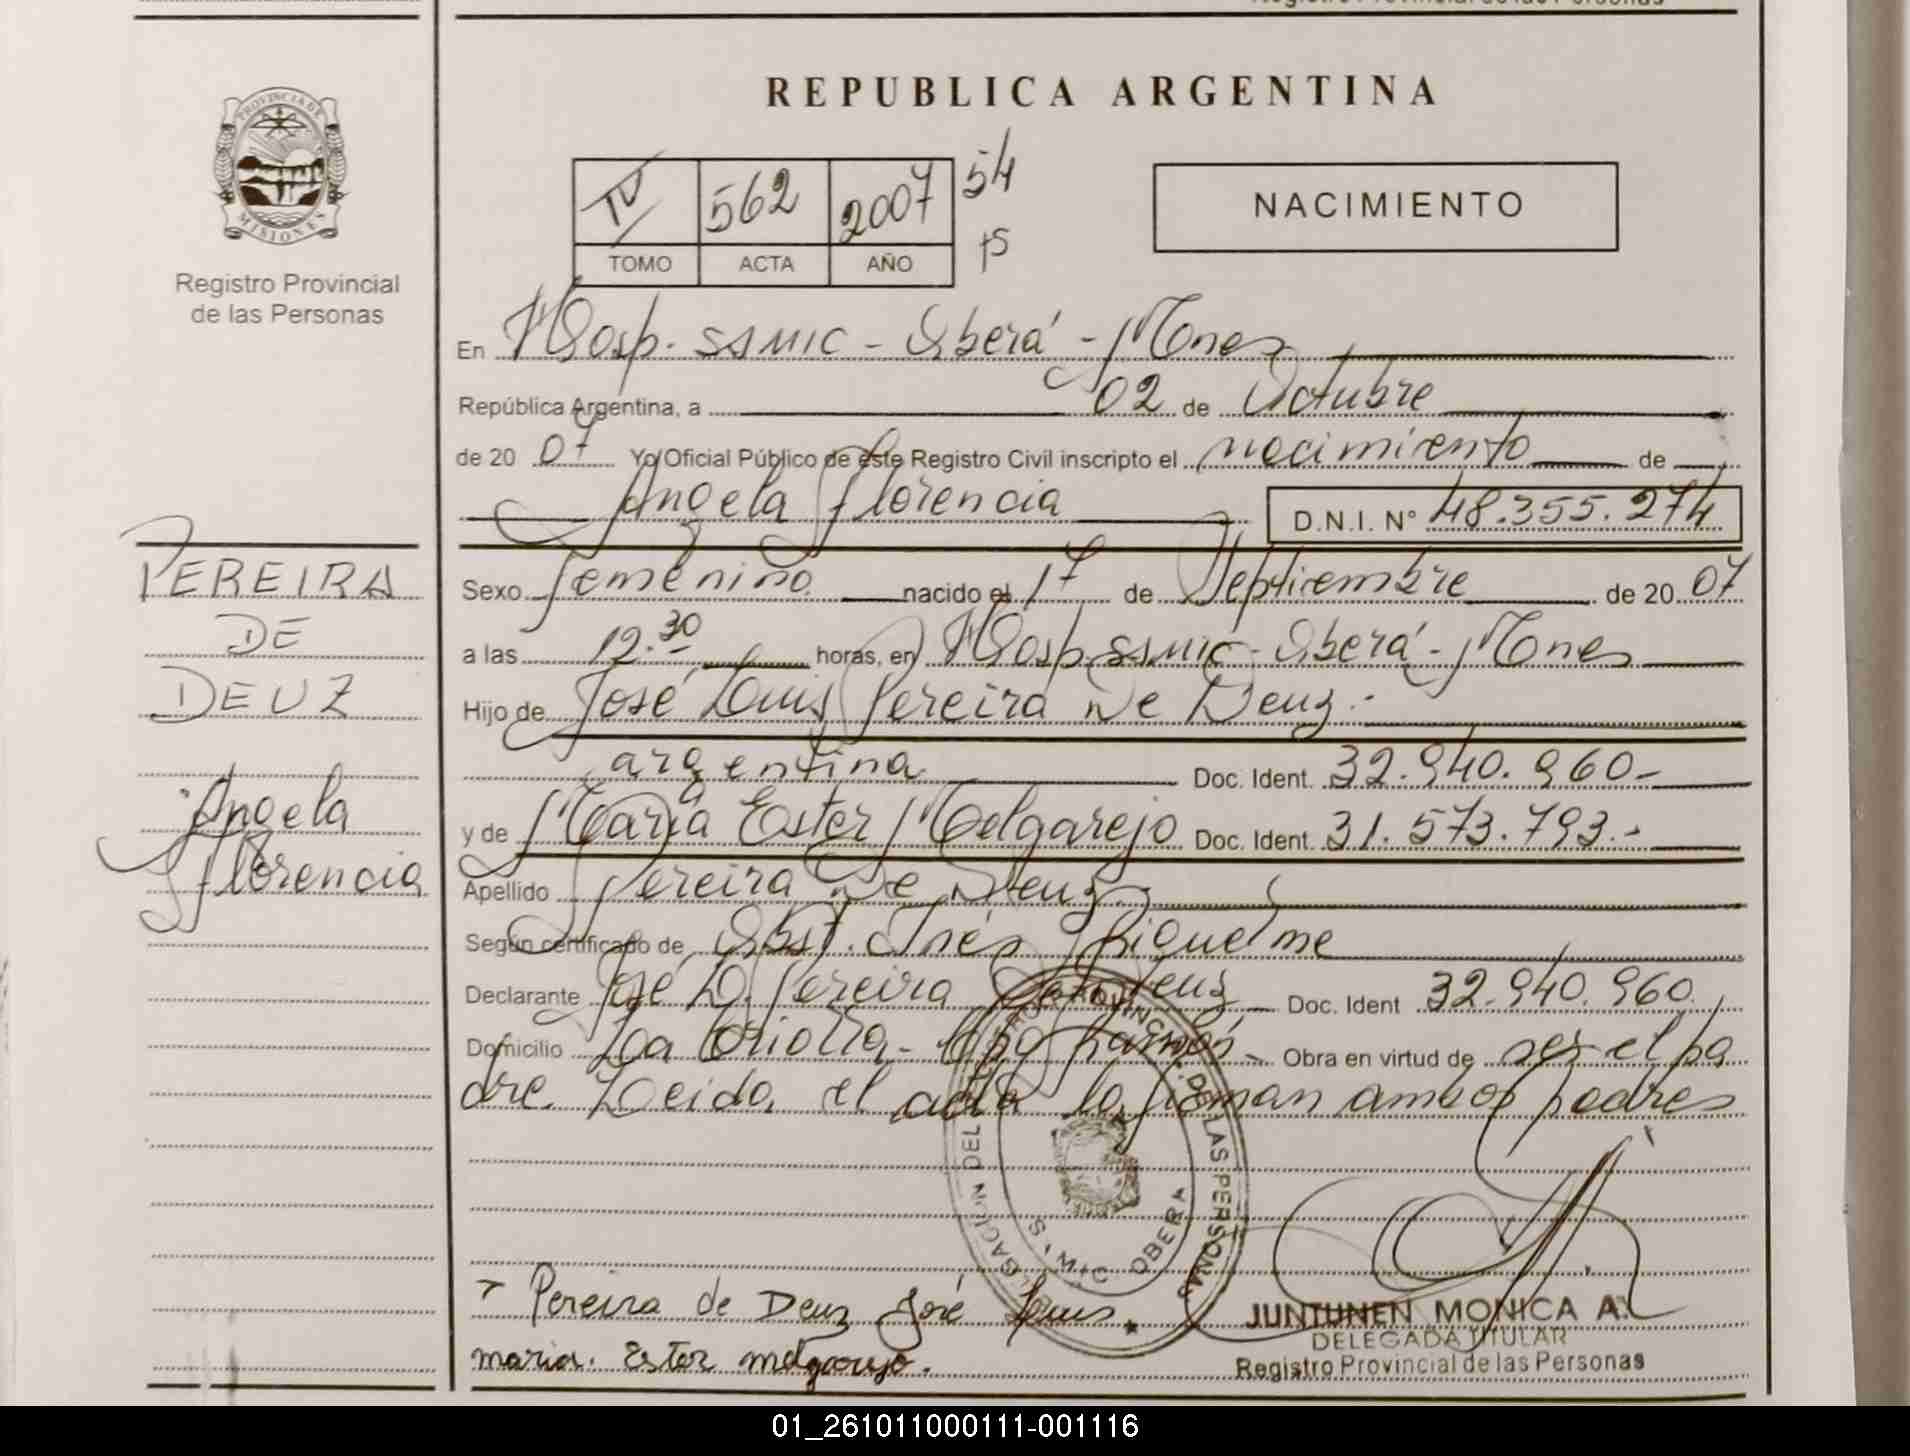 PROVINCIA DE
MISIONES
Registro Provincial
de las Personas
PEREIRA
DE
DEUZ
Angela
Florencia
REPUBLICA ARGENTINA
IV 562 2007 54
TOMO ACTA AÑO 75
NACIMIENTO
En Hosp. SAMIC - Oberá - Mones
República Argentina, a 02 de Octubre
de 20 07 Yo Oficial Público de este Registro Civil inscripto el nacimiento de
Angela Florencia D.N.I. N° 48.355.274
Sexo femenino nacido el 17 de Septiembre de 20 07
a las 12.30 horas, en Hosp. SAMIC - Oberá - Mones
Hijo de José Luis Pereira De Deuz.-
argentina Doc. Ident. 32.940.960-
y de María Ester Melgarejo Doc. Ident. 31.573.793.-
Apellido Pereira De Deuz.
Según certificado de Obst. Inés Riquelme
Declarante José L. Pereira De Deuz Doc. Ident 32.940.960.
Domicilio La Criolla - Cpo Ramón - Obra en virtud de ser el pa
dre. Leida el acta la firman ambos padres
DELEGACION DEL REGISTRO PROVINCIAL DE LAS PERSONAS
SAMIC OBERA
Pereira de Deuz José Luis
maria. Ester melgarejo.
JUNTUNEN MONICA A.
DELEGADA TITULAR
Registro Provincial de las Personas
01_261011000111-001116